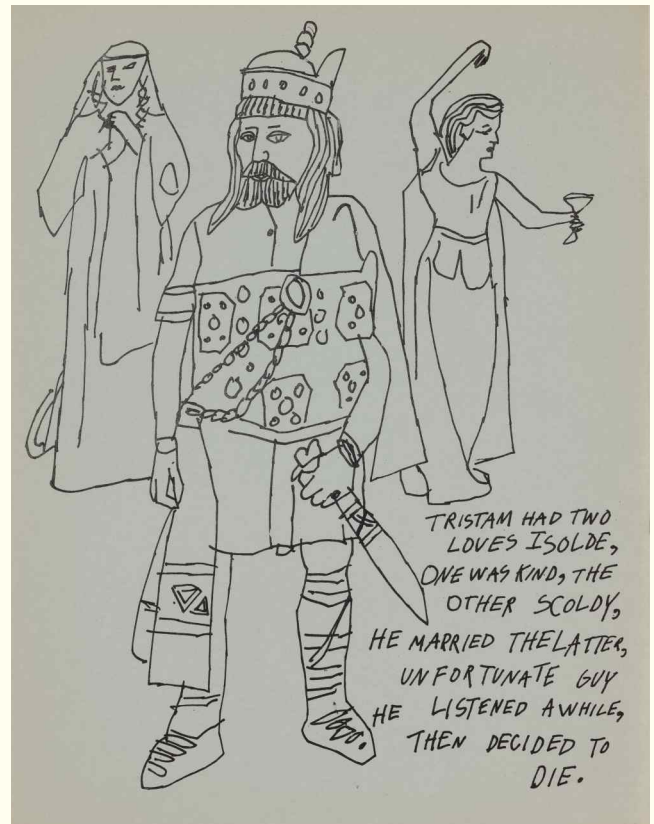 TRISTAM HAD TWO
LOVES ISOLDE,
ONE WAS KIND, THE
OTHER SCOLDY,
HE MARRIED THE LATTER,
UNFORTUNATE GUY
HE LISTENED AWHILE,
THEN DECIDED TO
DIE.